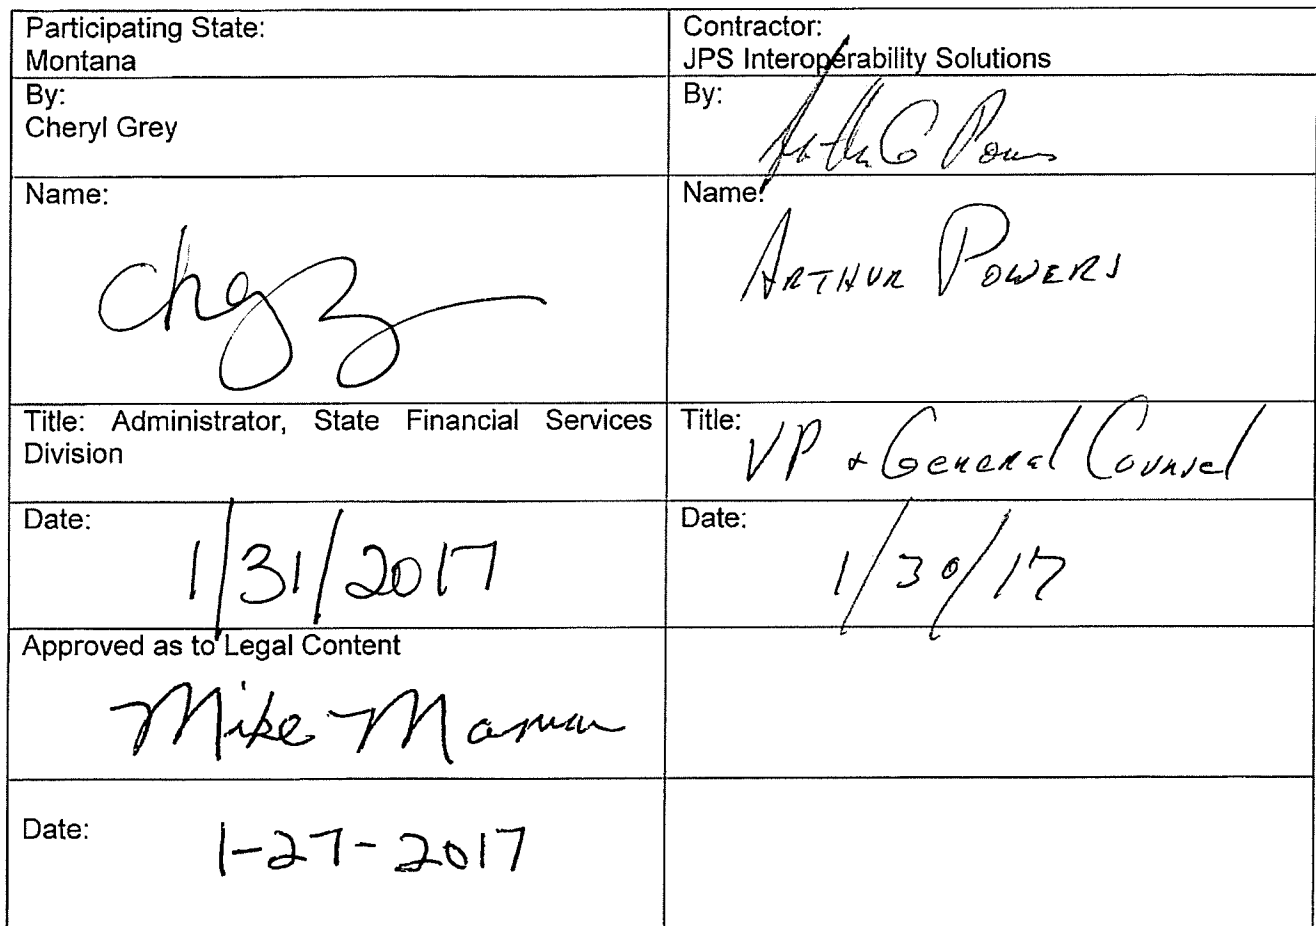 Participating State:
Montana
Contractor:
JPS Interoperability Solutions
By:
Cheryl Grey
By:
Name:
Name:
ARTHUR POWERS
Title: Administrator, State Financial Services
Division
Title:
VP + General Counsel
Date:
1/31/2017
Date:
1/30/17
Approved as to Legal Content
Mike
Date:
1-27-2017